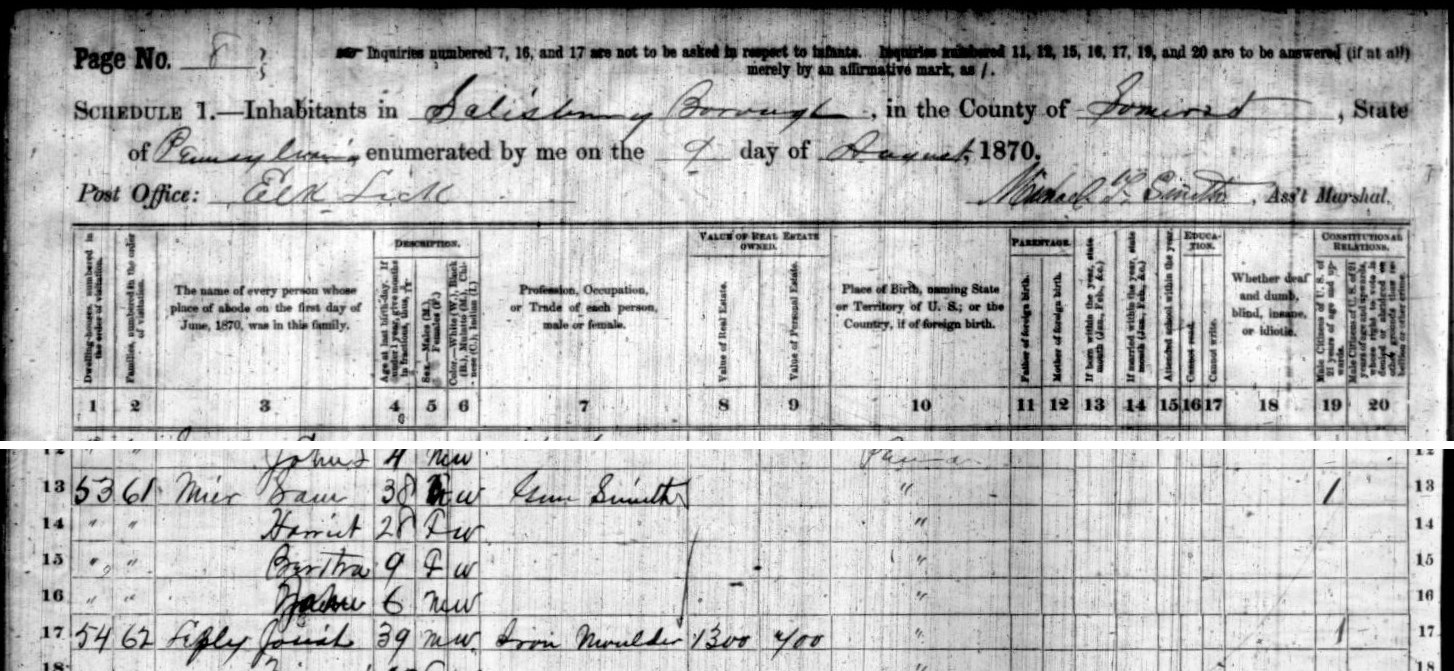 Page No. 8
Inquiries numbered 7, 16, and 17 are not to be asked in respect to infants. Inquiries numbered 11, 12, 15, 16, 17, 19, and 20 are to be answered (if at all)
merely by an affirmative mark, as /.
SCHEDULE 1.—Inhabitants in Salisbury Borough, in the County of Somerset, State
of Pennsylvania enumerated by me on the 9 day of August, 1870.
Post Office: Elk Lick
Smith, Ass't Marshal.
Dwelling-houses, numbered in the order of visitation.
Families, numbered in the order of visitation.
The name of every person whose place of abode on the first day of June, 1870, was in this family.
DESCRIPTION.
Age at last birth-day. If under 1 year, give months in fractions, thus,
Sex.—Males (M.), Females (F.)
Color.—White (W.), Black (B.), Mulatto (M.), Chinese (C.), Indian (I.)
Profession, Occupation, or Trade of each person, male or female.
VALUE OF REAL ESTATE OWNED.
Value of Real Estate.
Value of Personal Estate.
Place of Birth, naming State or Territory of U. S.; or the Country, if of foreign birth.
PARENTAGE.
Father of foreign birth.
Mother of foreign birth.
If born within the year, state month (Jan., Feb., &c.)
If married within the year, state month (Jan., Feb., &c.)
Attended school within the year.
EDUCATION.
Cannot read.
Cannot write.
Whether deaf and dumb, blind, insane, or idiotic.
CONSTITUTIONAL RELATIONS.
Male Citizens of U. S. of 21 years of age and upwards.
Male Citizens of U. S. of 21 years of age and upwards, whose right to vote is denied or abridged on other grounds than rebellion or other crime.
1 2 3 4 5 6 7 8 9 10 11 12 13 14 15 16 17 18 19 20
12 " " John 4 m w 12
13 53 61 Mier Sam 38 w Gun Smith " / 13
14 " " Harriet 28 F w " 14
15 " " Bertha 9 F w " 15
16 " " 6 m w " 16
17 54 62 Josiah 39 m w Iron Moulder 1300 400 " / 17
18 18